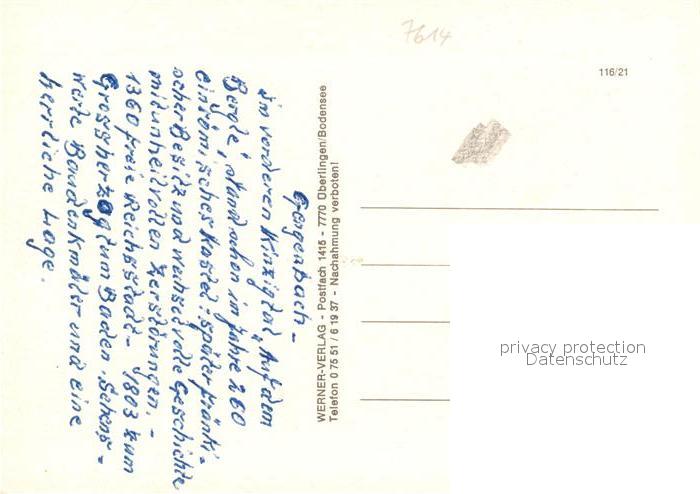 7614
116/21
Gengenbach -
im vorderen Kinzigtal. "Auf dem
Bergle", stand schon im Jahre 260
ein römisches Kastel: später fränki-
scher Besitz und wechselvolle Geschichte
mit unheilvollen Zerstörungen. -
1360 freie Reichsstadt - 1803 zum
Grossherzogtum Baden. Sehens-
werte Baudenkmäler und eine
herrliche Lage.
WERNER-VERLAG - Postfach 1415 - 7770 Überlingen/Bodensee
Telefon 0 75 51 / 6 19 37 - Nachahmung verboten!
privacy protection
Datenschutz